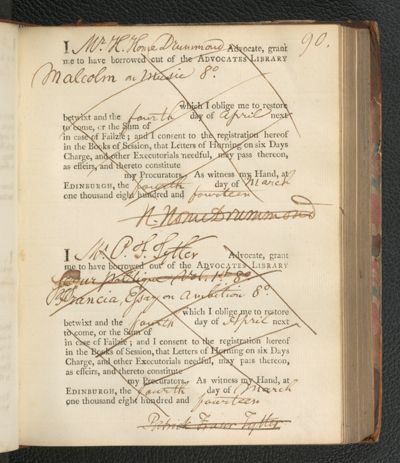 90.
I Mr. H. Home Drummond Advocate, grant
me to have borrowed out of the ADVOCATES LIBRARY
Malcolm on Music 8o.
which I oblige me to restore
betwixt and the fourth day of April next
to come, or the Sum of
in case of Failzie; and I consent to the registration hereof
in the Books of Session, that Letters of Horning on six Days
Charge, and other Executorials needful, may pass thereon,
as effeirs, and thereto constitute
my Procurators. As witness my Hand, at
EDINBURGH, the fourth day of March
one thousand eight hundred and fourteen
H. Home Drummond
I Mr. P. F. Tytler Advocate, grant
me to have borrowed out of the ADVOCATES LIBRARY
Vol. 1st 8o
Francia, Essay on Ambition 8o.
which I oblige me to restore
betwixt and the fourth day of April next
to come, or the Sum of
in case of Failzie; and I consent to the registration hereof
in the Books of Session, that Letters of Horning on six Days
Charge, and other Executorials needful, may pass thereon,
as effeirs, and thereto constitute
my Procurators. As witness my Hand, at
EDINBURGH, the fourth day of March
one thousand eight hundred and fourteen
Patrick Fraser Tytler.